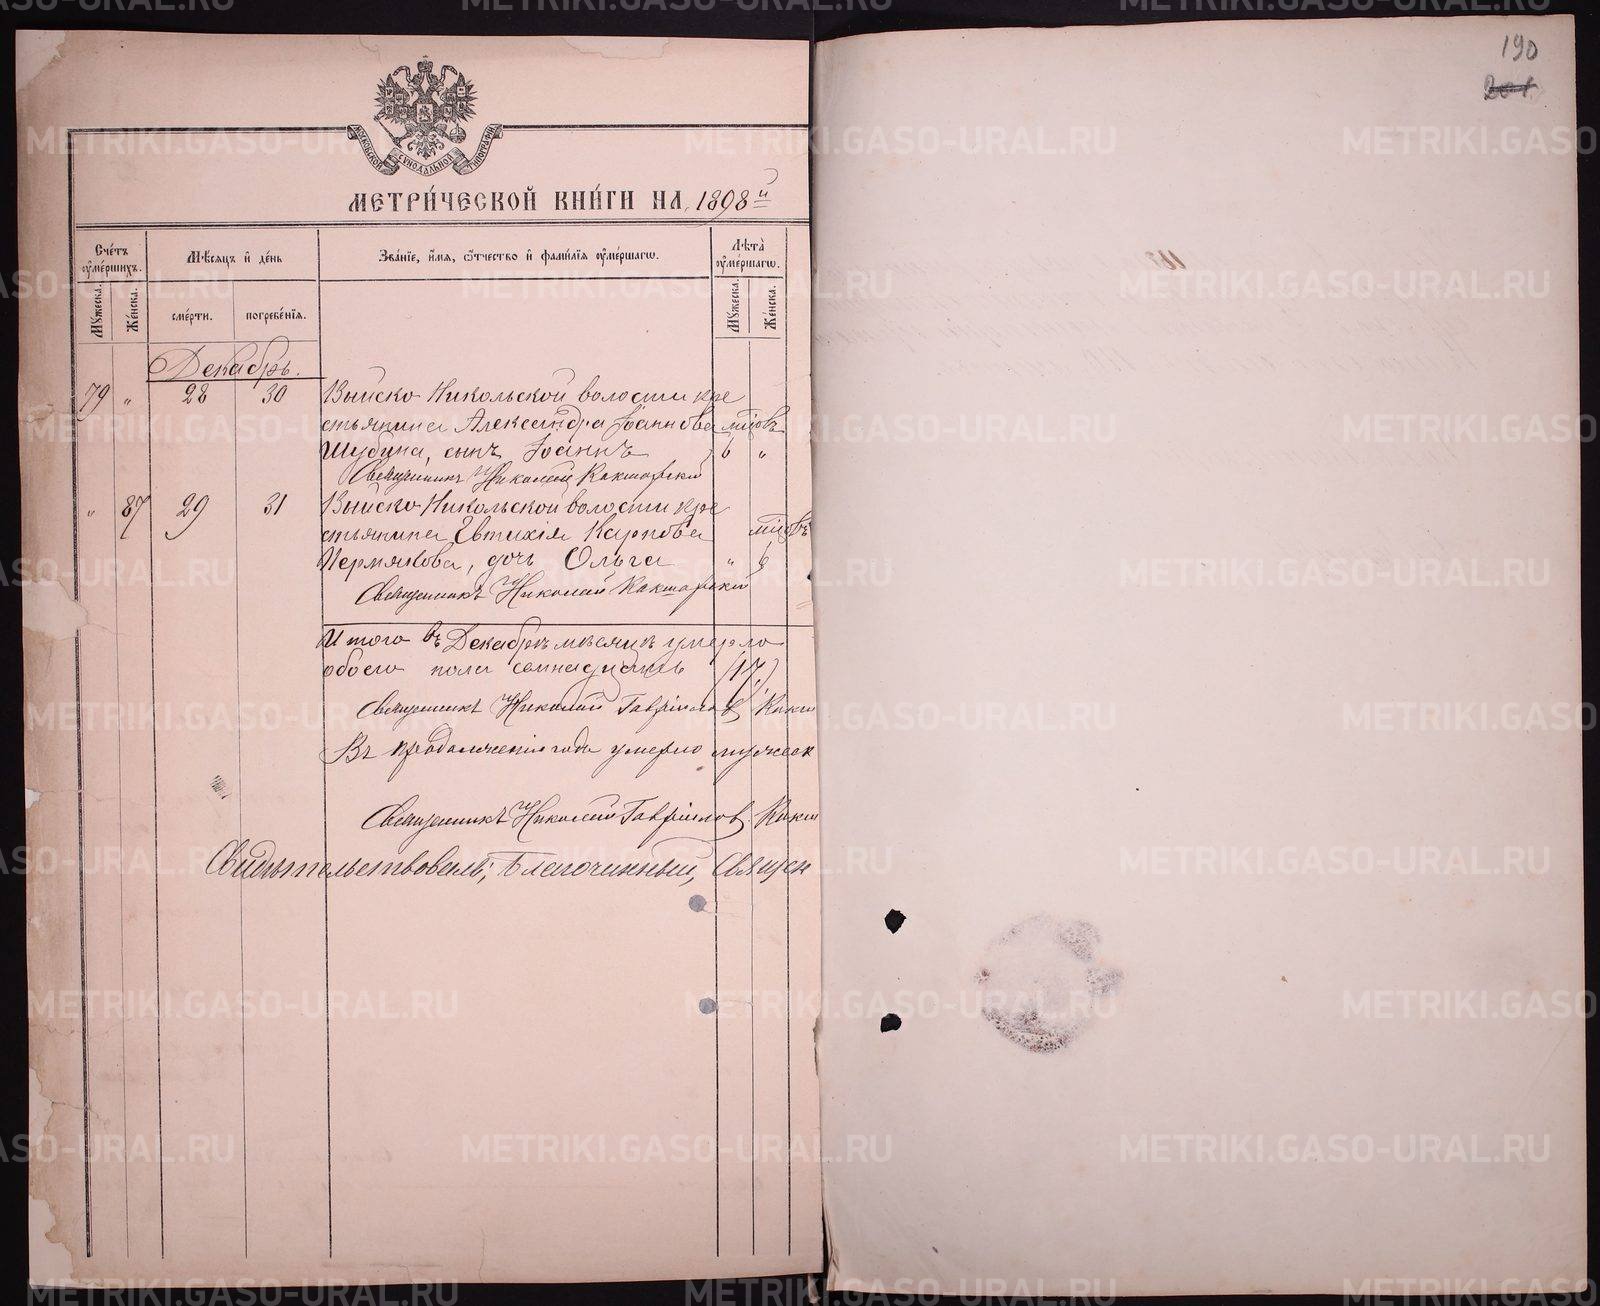 190
201
МОСКОВСКОЙ СѴНОДАЛЬНОЙ ТИПОГРАФІИ
МЕТРИ́ЧЕСКОЙ КНИ́ГИ НА 1898й
Сче́тъ оуме́ршихъ.
Мѣ́сяцъ и де́нь
Зва́нїе, и́мя, ѻ́тчество и фами́лїя оуме́ршагѡ.
Лѣта̀ оуме́ршагѡ.
Мꙋ́жеска.
Же́нска.
сме́рти.
погребе́нїя.
Мꙋ́жеска.
Же́нска.
Декабрь.
79 " 28 30 Выйско Никольской волости кре
стьянина Александра Іоаннова мѣцовъ
Шубина, сынъ Іоаннъ 6 "
Священникъ Николай Какшарскій
" 87 29 31 Выйско Никольской волости кре
стьянина Евтихія Карпова мѣцовъ
Пермякова, дочь Ольга " 6
Священникъ Николай Какшарскій
Итого въ Декабрѣ мѣсяцѣ умерло
обоего пола семнадцать (17)
Священникъ Николай Гавріилов Какш
Въ продолженіи года умерло мужеск
Священникъ Николай Гавріилов Какш
Свидѣтельствовалъ, Благочинный, Священ
METRIKI.GASO-URAL.RU